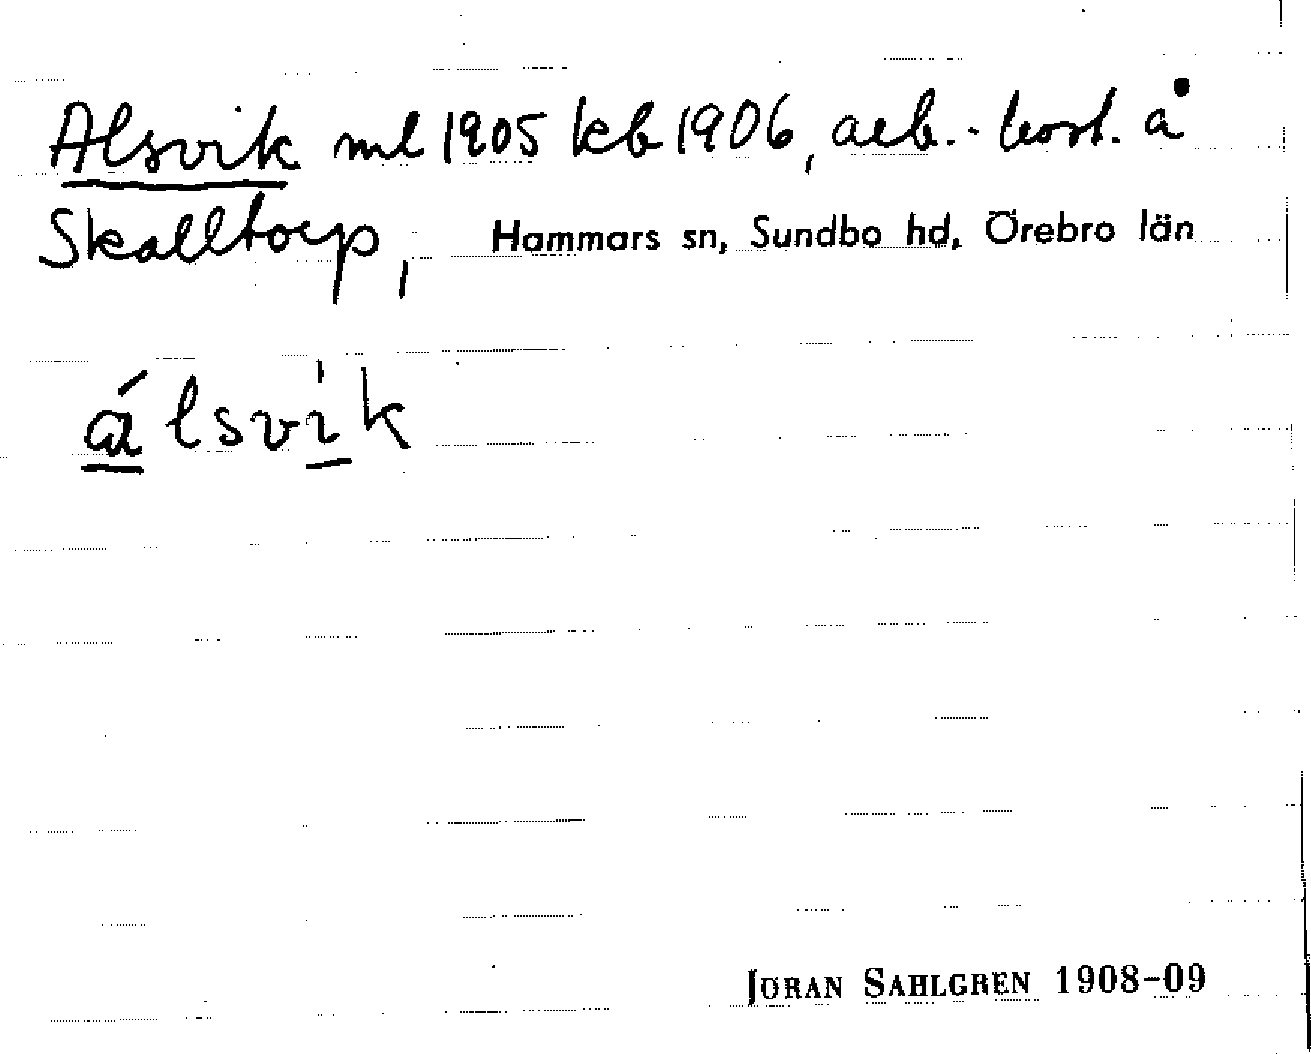 Alsvik ml 1905 kb 1906, arb.-bost. å
Skalltorp, Hammars sn, Sundbo hd, Örebro län
álsvìk
JÖRAN SAHLGREN 1908-09